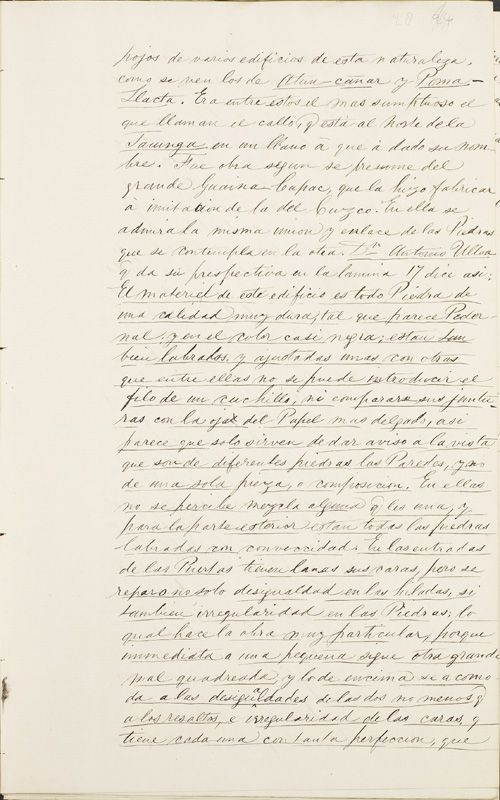 24
pojos de varios edificios de esta naturaleza,
como se ven los de Atun-cañar y Poma-
Llacta. Era entre estos el mas sumptuoso el
que llaman el callo, q está al norte de la
Tacunga en un llano à que à dado su nom-
bre. Fue obra segun se presume del
grande Guaina Capac, que la hizo fabricar
à imitacion de la del Cuzco. En ella se
admira la misma union y enlace de las Piedras
que se contempla en la otra. Dn Antonio Ulloa
q da su prespectiva en la lamina 17 dice asi:
El material de este edificio es todo Piedra de
una calidad muy dura, tal que parece Peder-
nal; y en el color casi negra; estan tan
bien labradas, y ajustadas unas con otras
que entre ellas no se puede introducir el
filo de un cuchillo, ni compararse sus juntu-
ras con la oja del Papel mas delgado, asi
parece que solo sirven de dar aviso a la vista
que son de diferentes piedras las Paredes, y no
de una sola pieza, o composicion. En ellas
no se percibe mezcla alguna q les una, y
para la parte esterior estan todas las piedras
labradas con conveccidad. En las entradas
de las Puertas tienen lanas sus caras, pero se
repara no solo desigualdad en las hiladas, si
tambien irregularidad en las Piedras; lo
qual hace la obra muy particular, porque
immediata a una pequeña sigue otra grande
mal quadreada, y lo de encima se acomo-
da a las desigualdades de las dos no menos q
a los resaltos, e irregularidad de las caras, q
tiene cada una con tanta perfeccion, que